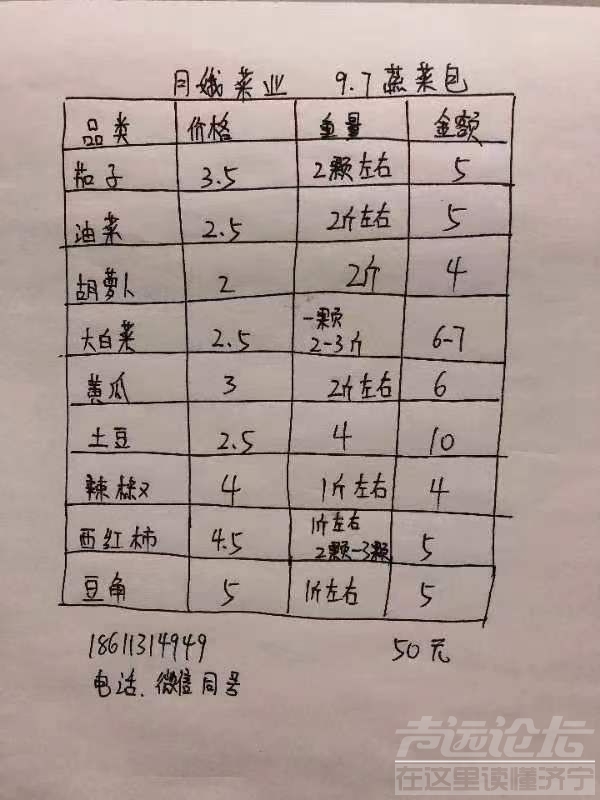 月娥菜业 9.7蔬菜包
品类 价格 重量 金额
茄子 3.5 2颗左右 5
油菜 2.5 2斤左右 5
胡萝卜 2 2斤 4
大白菜 2.5 一颗 2-3斤 6-7
黄瓜 3 2斤左右 6
土豆 2.5 4 10
辣椒 4 1斤左右 4
西红柿 4.5 1斤左右 2颗-3颗 5
豆角 5 1斤左右 5
18611314949 50元
电话、微信同号
声远论坛
在这里读懂济宁